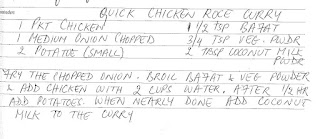 QUICK CHICKEN ROCE CURRY
1 PKT CHICKEN 1/2 TSP BAFAT
1 MEDIUM ONION CHOPPED 3/4 TSP VEG. PWDR
2 POTATOE (SMALL) 2 TBSP COCONUT MILK
PWDR
FRY THE CHOPPED ONION. BROIL BAFAT & VEG POWDER
& ADD CHICKEN WITH 2 CUPS WATER, AFTER 1/2 HR
ADD POTATOES. WHEN NEARLY DONE ADD COCONUT
MILK TO THE CURRY